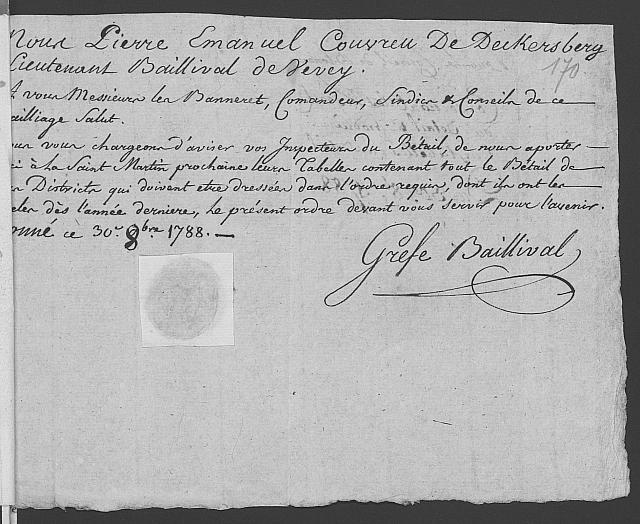 Nous Pierre Emanuel Couvreu De Deckersberg
Lieutenant Baillival de Vevey.
170
A vous Messieurs les Banneret, Comandeur, Sindics & Conseils de ce
ailliage Salut.
ous vous chargeons d'aviser vos Inspecteurs du Bétail, de nous aporter
ci à la Saint Martin prochaine leurs Tabelles contenant tout le Bétail de
Districts qui doivent etre dressées dans l'ordre requis, dont ils ont les
eles dès l'année derniere, le présent ordre devant vous servir pour l'avenir.
onné ce 30.e 8bre. 1788.
Grefe Baillival